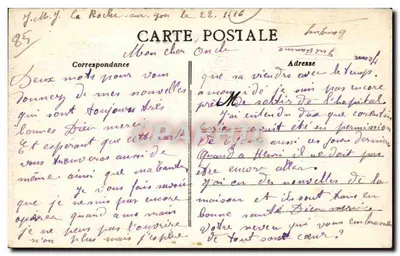 J. M. J. La Roche-sur-yon le 22. 1916
85
CARTE POSTALE
Mon cher Oncle
Correspondance
Adresse
Deux mots pour vous
donnez de mes nouvelles
qui sont toujours très
bonnes Dieu merci
Et esperant que cette carte
vous trouveras aussi de
même ainsi que ma tante
Je vous fais savoir
que je ne suis pas encore
opérer quand a ma main
je ne peus pas l'ouvrire
non plus mais j'espère
que sa viendra avec le temps
je suis pas encore
près de sortir de l'hopital
J'ai entendu dire que
été en permission
de ces jours derniers
Quand a Henri il ne doit pas
être encore aller
J'ai eu des nouvelles de la
maison et ils sont tous en
bonne santé Dieu merci
Votre neveu qui vous embrasse
de tout sont cœur